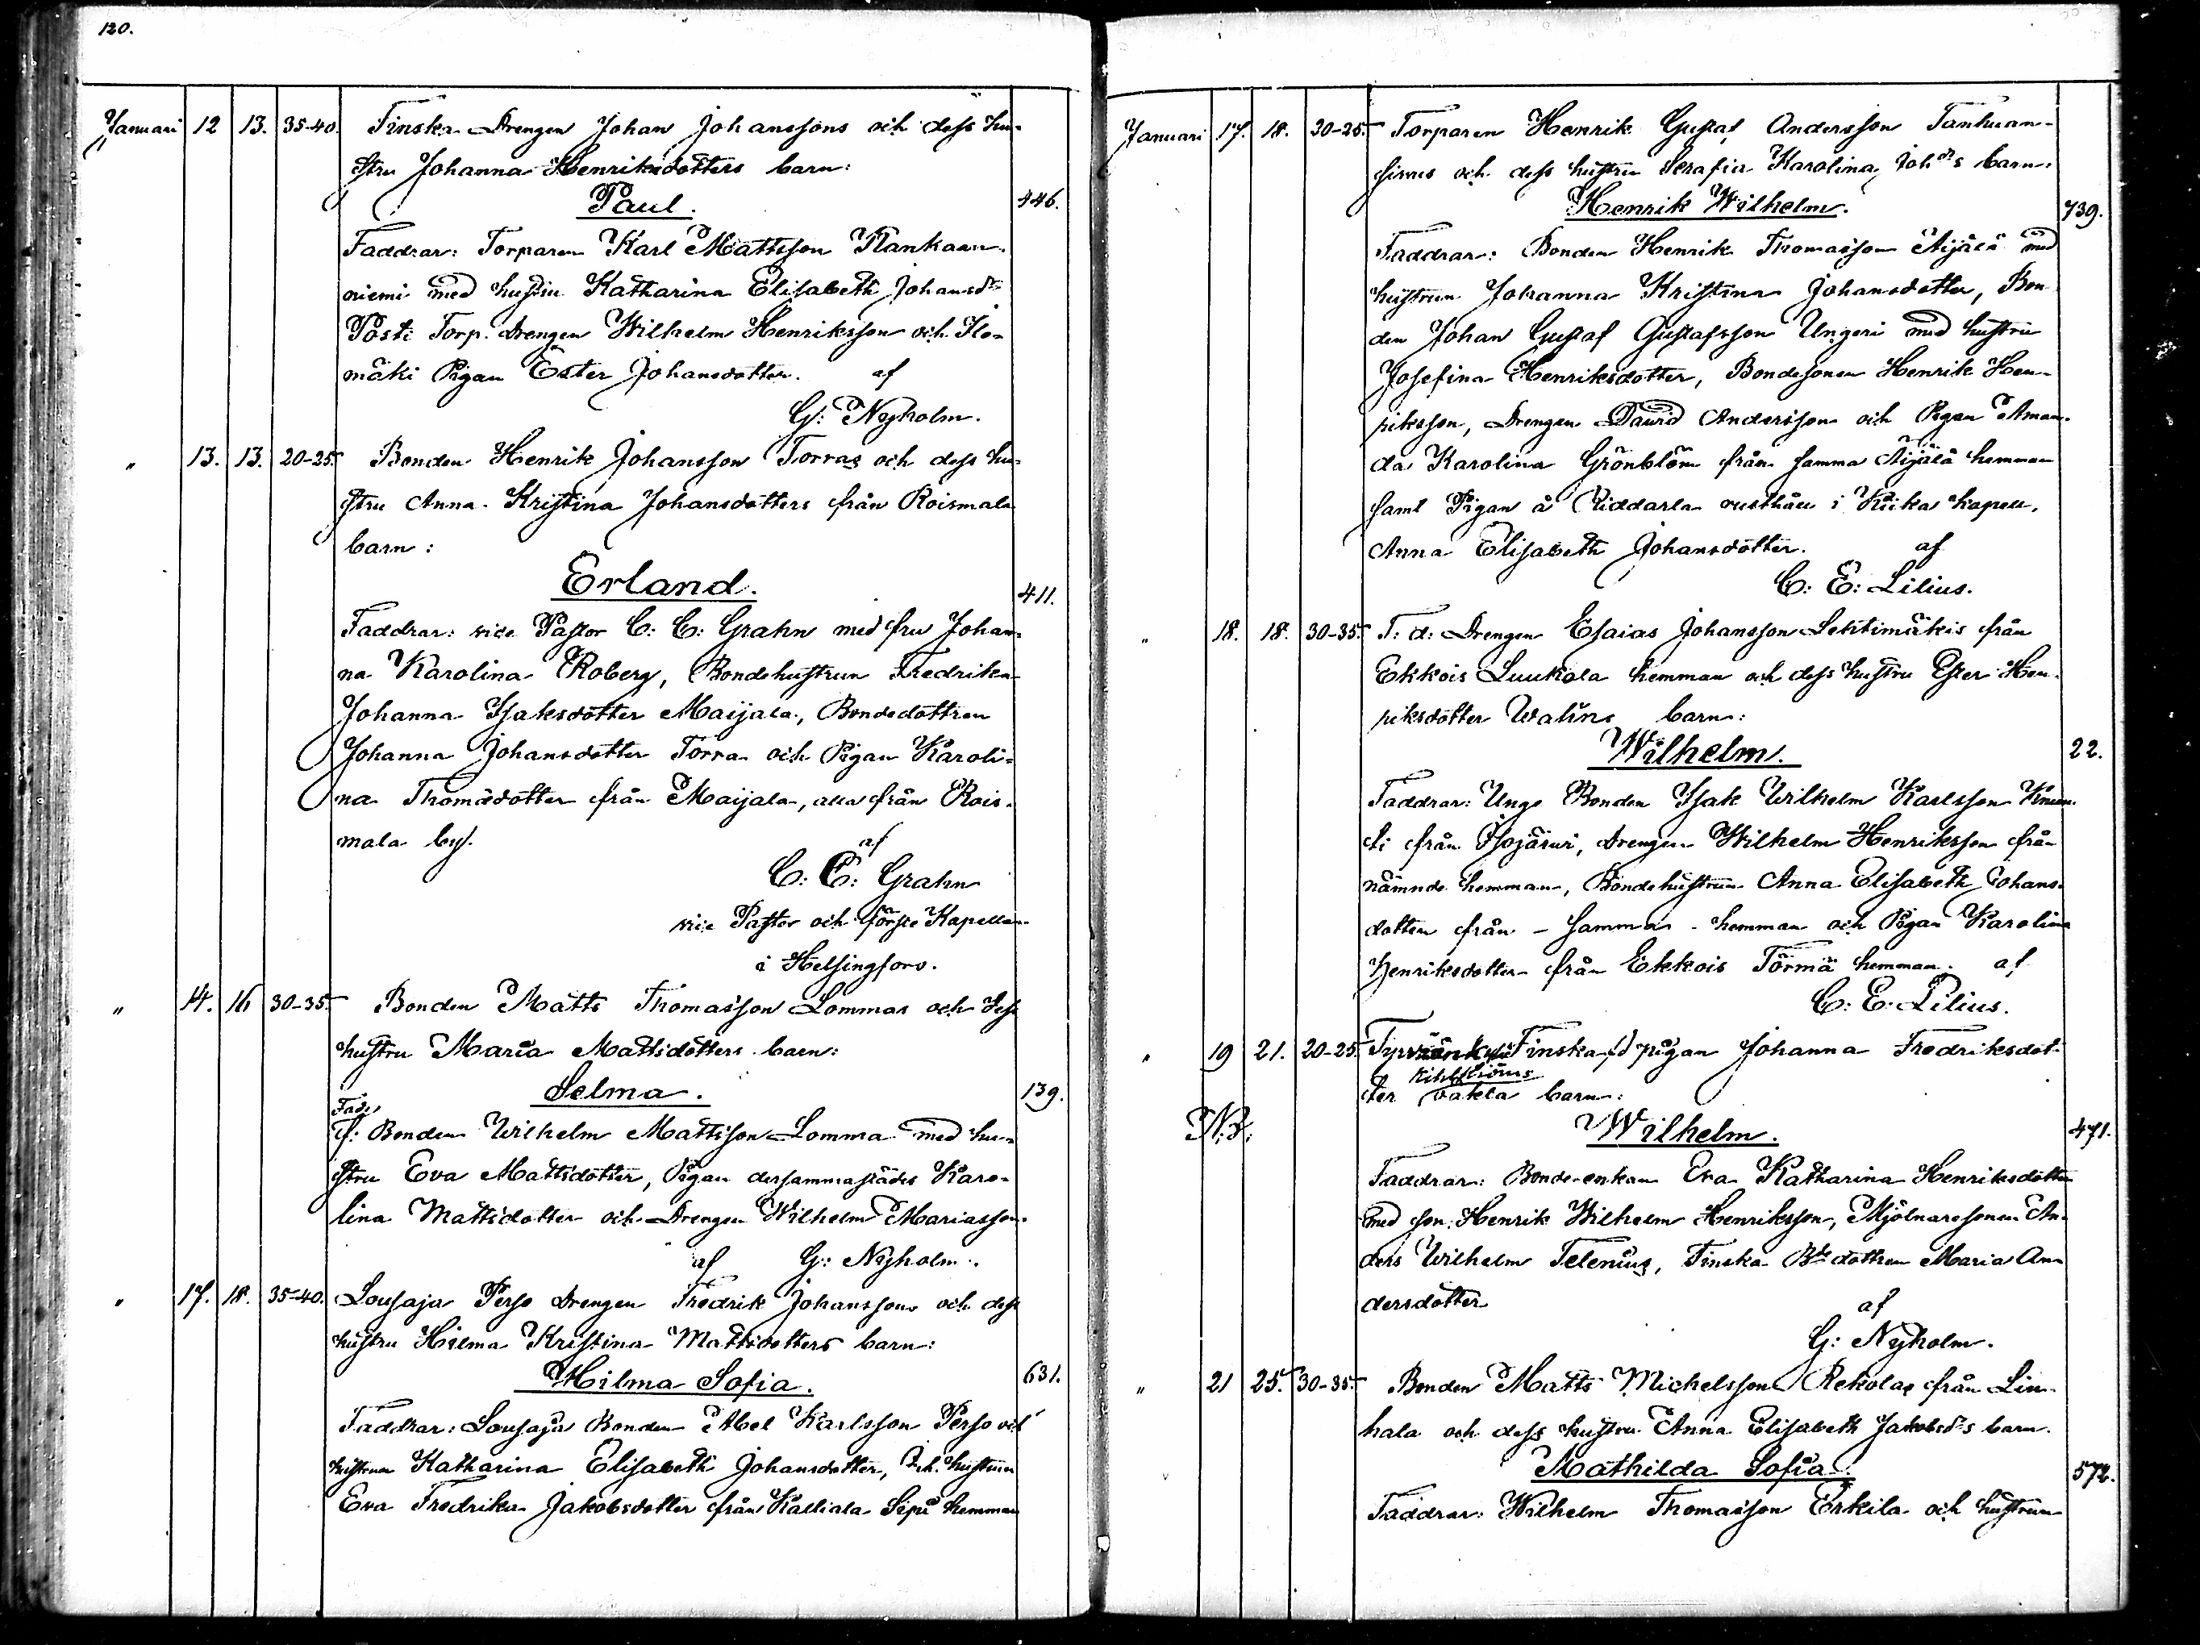 120.
Januari 12 13. 35-40. Finska Drengen Johan Johanssons och dess hu-
stru Johanna Henriksdotters barn:
Paul. 446.
Faddrar: Torparen Karl Mattsson Kankaan-
niemi med hustru Katharina Elisabeth Johansdr
Posti Torp. Drengen Wilhelm Henriksson och Ilo-
mäki Pigan Ester Johansdotter. af
G: Nyholm.
" 13. 13. 20-25. Bonden Henrik Johansson Torras och dess hu-
stru Anna Kristina Johansdotters från Roismala
barn:
Erland. 411.
Faddrar: vice Pastor C: C: Grahn med fru Johan-
na Karolina Roberg, Bondehustrun Fredrika
Johanna Isaksdotter Maijala, Bondedottren
Johanna Johansdotter Torra och Pigan Karoli-
na Thomasdotter från Maijala, alla från Rois-
mala by. af
C: C: Grahn
vice Pastor och förste Kapellan
i Helsingfors.
" 14. 16 30-35. Bonden Matts Thomasson Lommas och dess
hustru Maria Mattsdotters barn:
Selma. 139.
Fadr
F: Bonden Wilhelm Mattsson Lomma med hu-
stru Eva Mattsdotter, Pigan dersammastädes Karo-
lina Mattsdotter och Drengen Wilhelm Mariasson.
af G: Nyholm.
" 17. 18. 35-40. Lousaja Perso Drengen Fredrik Johanssons och dess
hustru Hilma Kristina Mattsdotters barn:
Hilma Sofia. 631.
Faddrar: Lousaja Bonden Abel Karlsson Perso och
hustrun Katharina Elisabeth Johansdotter, hustrun
Eva Fredrika Jakobsdotter från Kalliala Sipi hemman
Januari 17. 18. 30-25. Torparen Henrik Gustaf Andersson Tanhuan-
sivus och dess hustru Serafia Karolina Johdrs barn:
Henrik Wilhelm. 739.
Faddrar: Bonden Henrik Thomasson Äijälä med
hustrun Johanna Kristina Johansdotter, Bon-
den Johan Gustaf Gustafsson Ungeri med hustru
Josefina Henriksdotter, Bondesonen Henrik Hen-
riksson, Drengen David Andersson och Pigan Aman-
da Karolina Grönblom från samma Äijälä hemman
samt Pigan å Riddarla rusthåll i Kiika Kapell,
Anna Elisabeth Johansdotter. af
C: E: Lilius.
" 18. 18. 30-35. T: d: Drengen Esaias Johansson Lehtimäkis från
Ekkois Luukala hemman och dess hustru Ester Hen-
riksdotter Walins barn:
Wilhelm. 22.
Faddrar: Unge Bonden Isak Wilhelm Karlsson
från Isojärvi, Drengen Wilhelm Henriksson från
nämnde hemman, Bondehustrun Anna Elisabeth Johans-
dotter från samma hemman och Pigan Karolina
Henriksdotter från Ekkois Törmä hemman. af
C: E: Lilius.
" 19 21. 20-25. Finska pigan Johanna Fredriksdot-
ter barn:
N.B. Wilhelm. 471.
Faddrar: Bonde-enkan Eva Katharina Henriksdotter
med son Henrik Wilhelm Henriksson, Mjölnaresonen An-
ders Wilhelm Telenius, Finska Bde dottren Maria An-
dersdotter af
G: Nyholm.
" 21 25. 30-35. Bonden Matts Michelsson Rekolas från Lin-
hala och dess hustru Anna Elisabeth Jakobsdrs barn.
Mathilda Sofia. 572.
Faddrar: Wilhelm Thomasson Erkila och hustrun